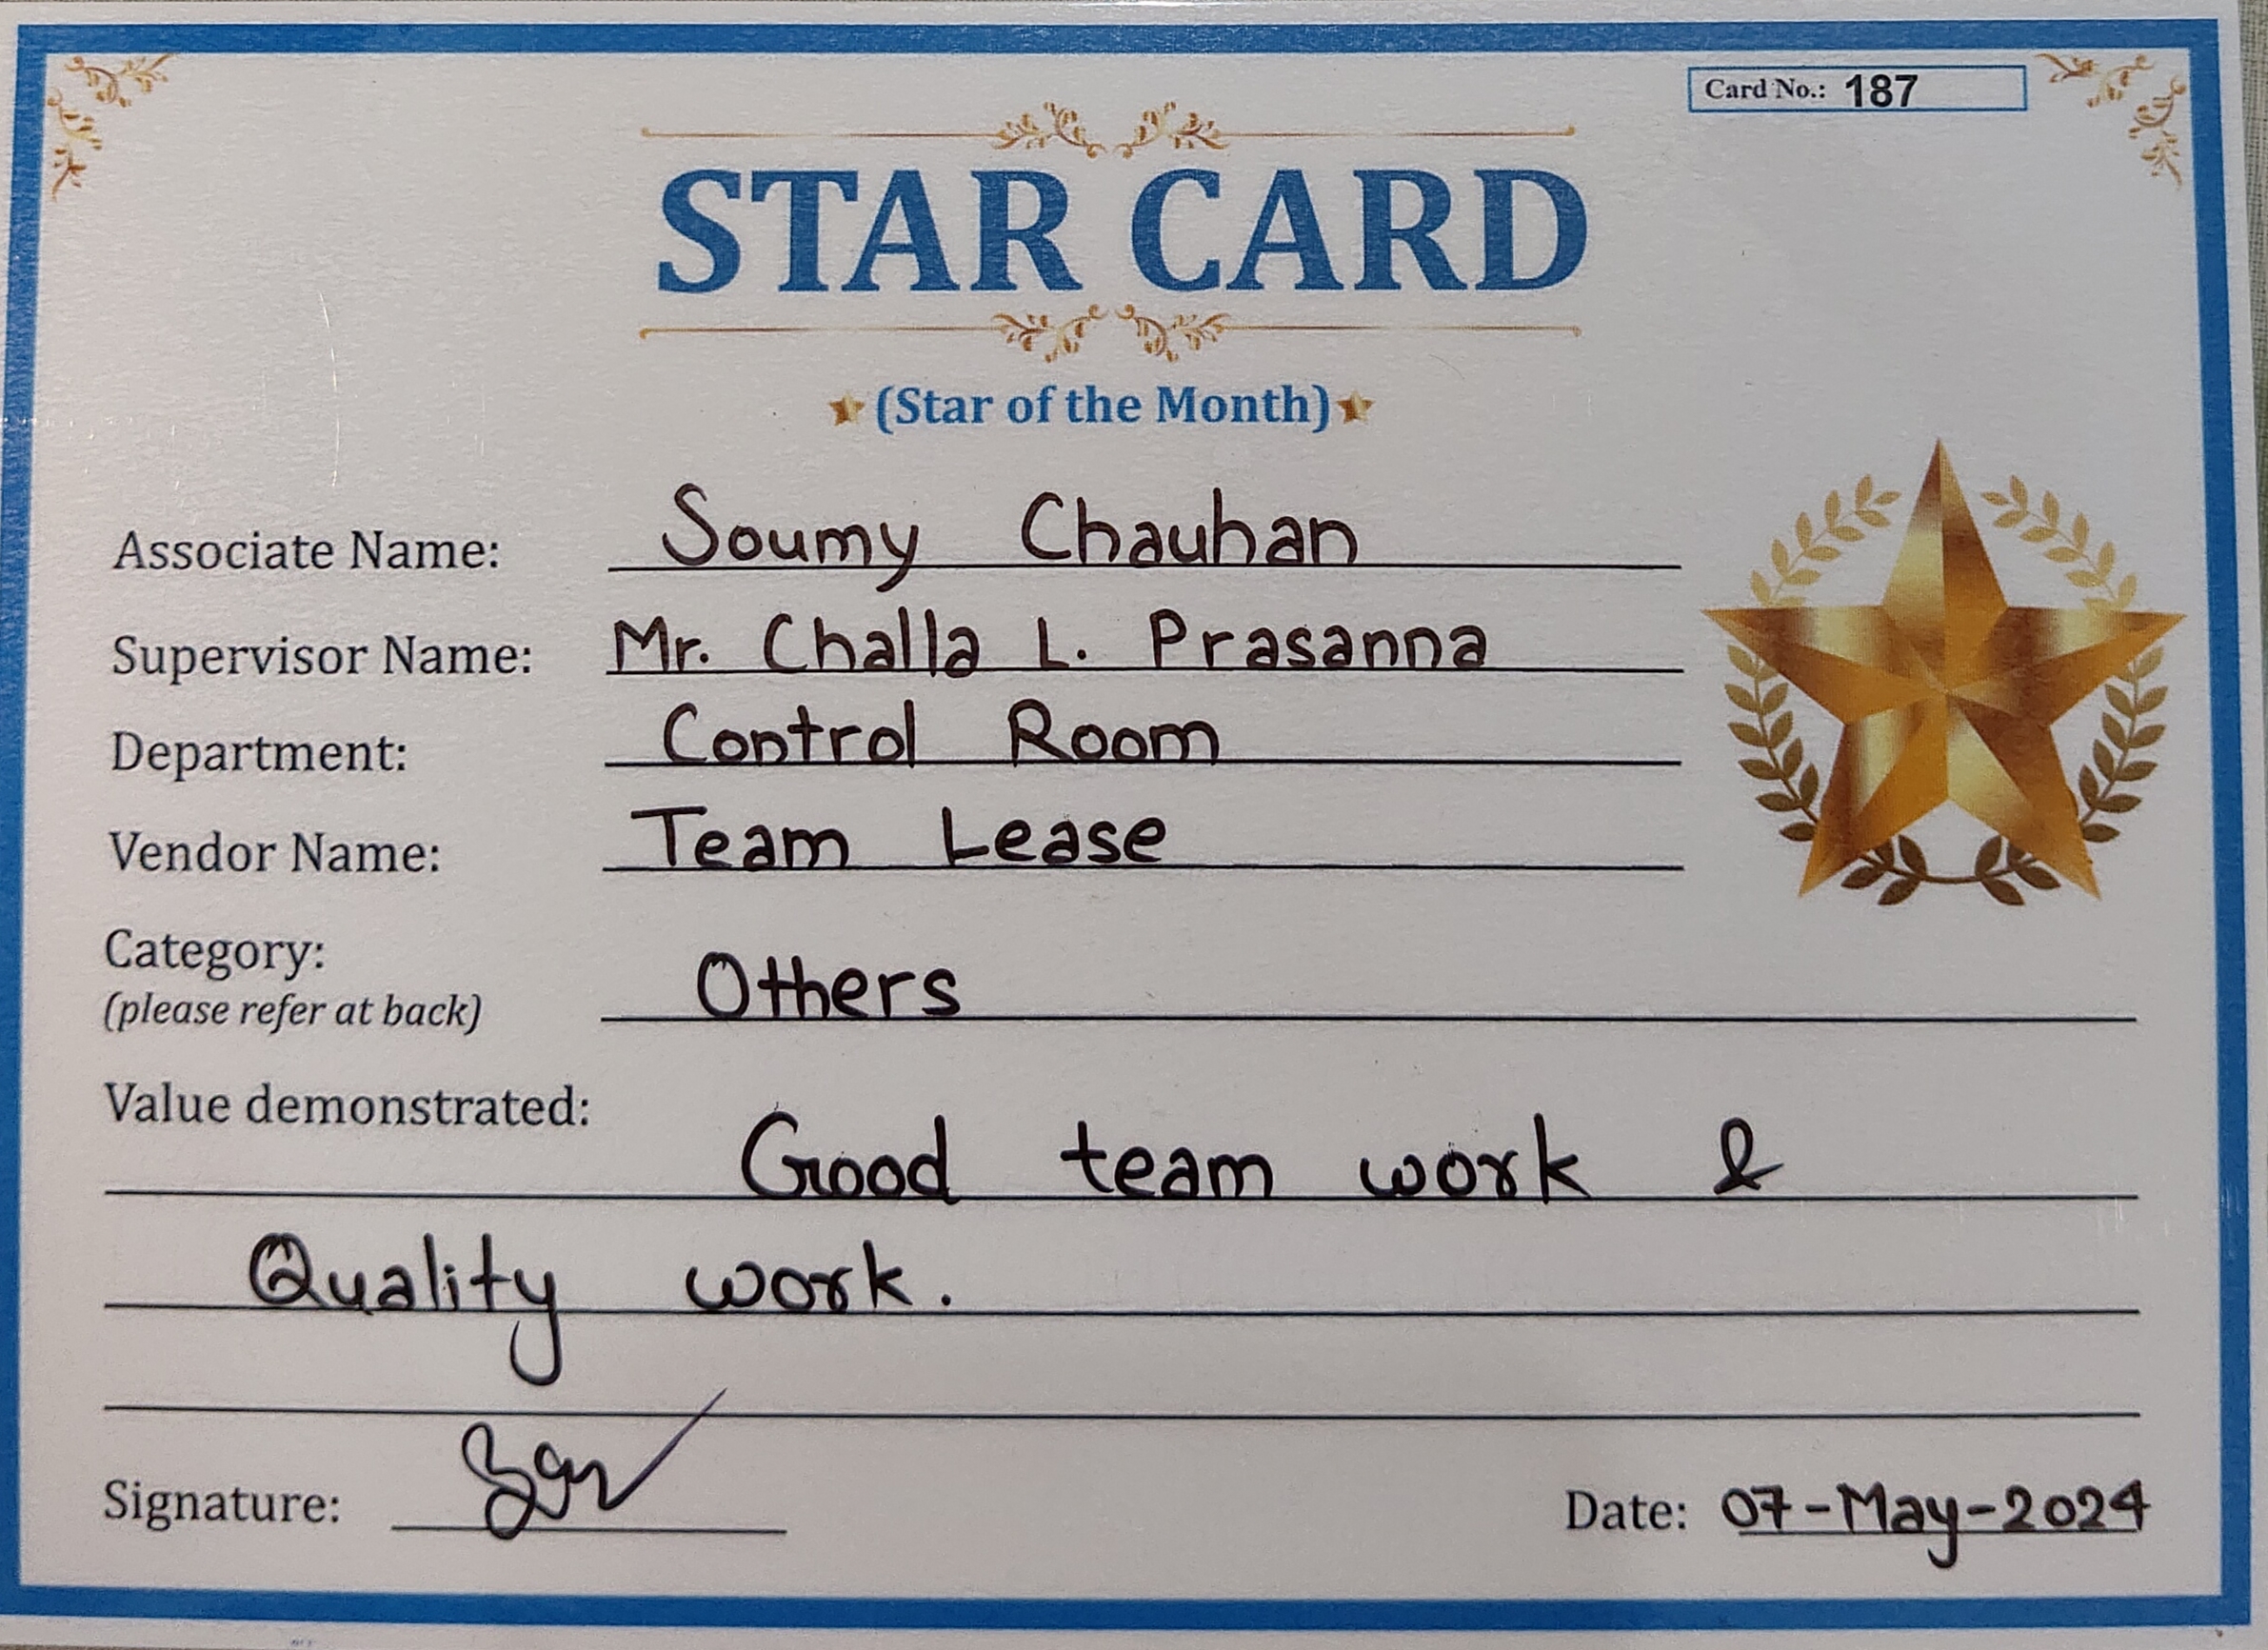 Card No.: 187
STAR CARD
(Star of the Month)
Associate Name: Soumy Chauhan
Supervisor Name: Mr. Challa L. Prasanna
Department: Control Room
Vendor Name: Team Lease
Category: Others
(please refer at back)
Value demonstrated:
Good team work &
Quality work.
Signature:
Date: 07-May-2024